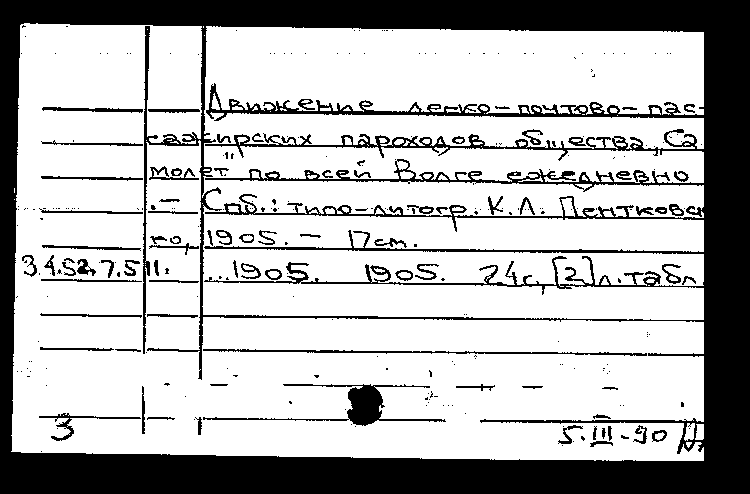 Движение легко-почтово-пас-
сажирских пароходов общества „Са
молет" по всей Волге ежедневно
.- Спб.: типо-литогр. К.Л. Пентковск
го, 1905. - 17см.
3.4.52.7.5 11. ...1905. 1905. 24с, [2] л. табл.
3 5.III-90